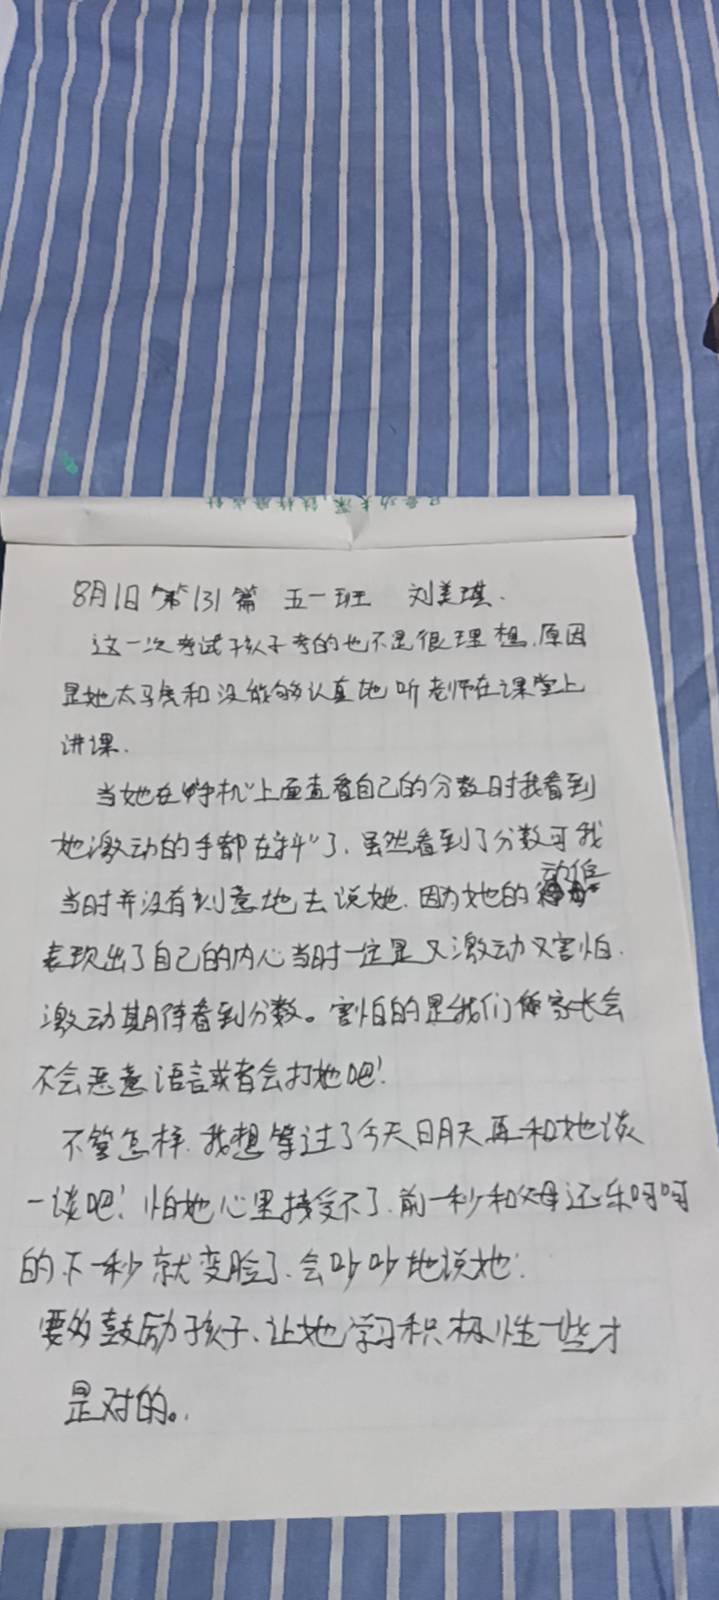 只要功夫深,铁杵磨成针
8月1日 第131篇 五一班 刘美琪.
这一次考试孩子考的也不是很理想.原因
是她太马虎和没能够认真地听老师在课堂上
讲课.
当她在“手机”上面查看自己的分数时我看到
她激动的手都在“抖”了.虽然看到了分数可我
当时并没有刻意地去说她.因为她的动作
表现出了自己的内心当时一定是又激动又害怕.
激动期待看到分数。害怕的是我们做家长会
不会恶意语言或者会打她吧!
不管怎样.我想等过了今天明天再和她谈
一谈吧!怕她心里接受不了.前一秒和父母还乐呵呵
的下一秒就变脸了.会吵吵地说她.
要多鼓励孩子、让她学习积极性一些才
是对的。